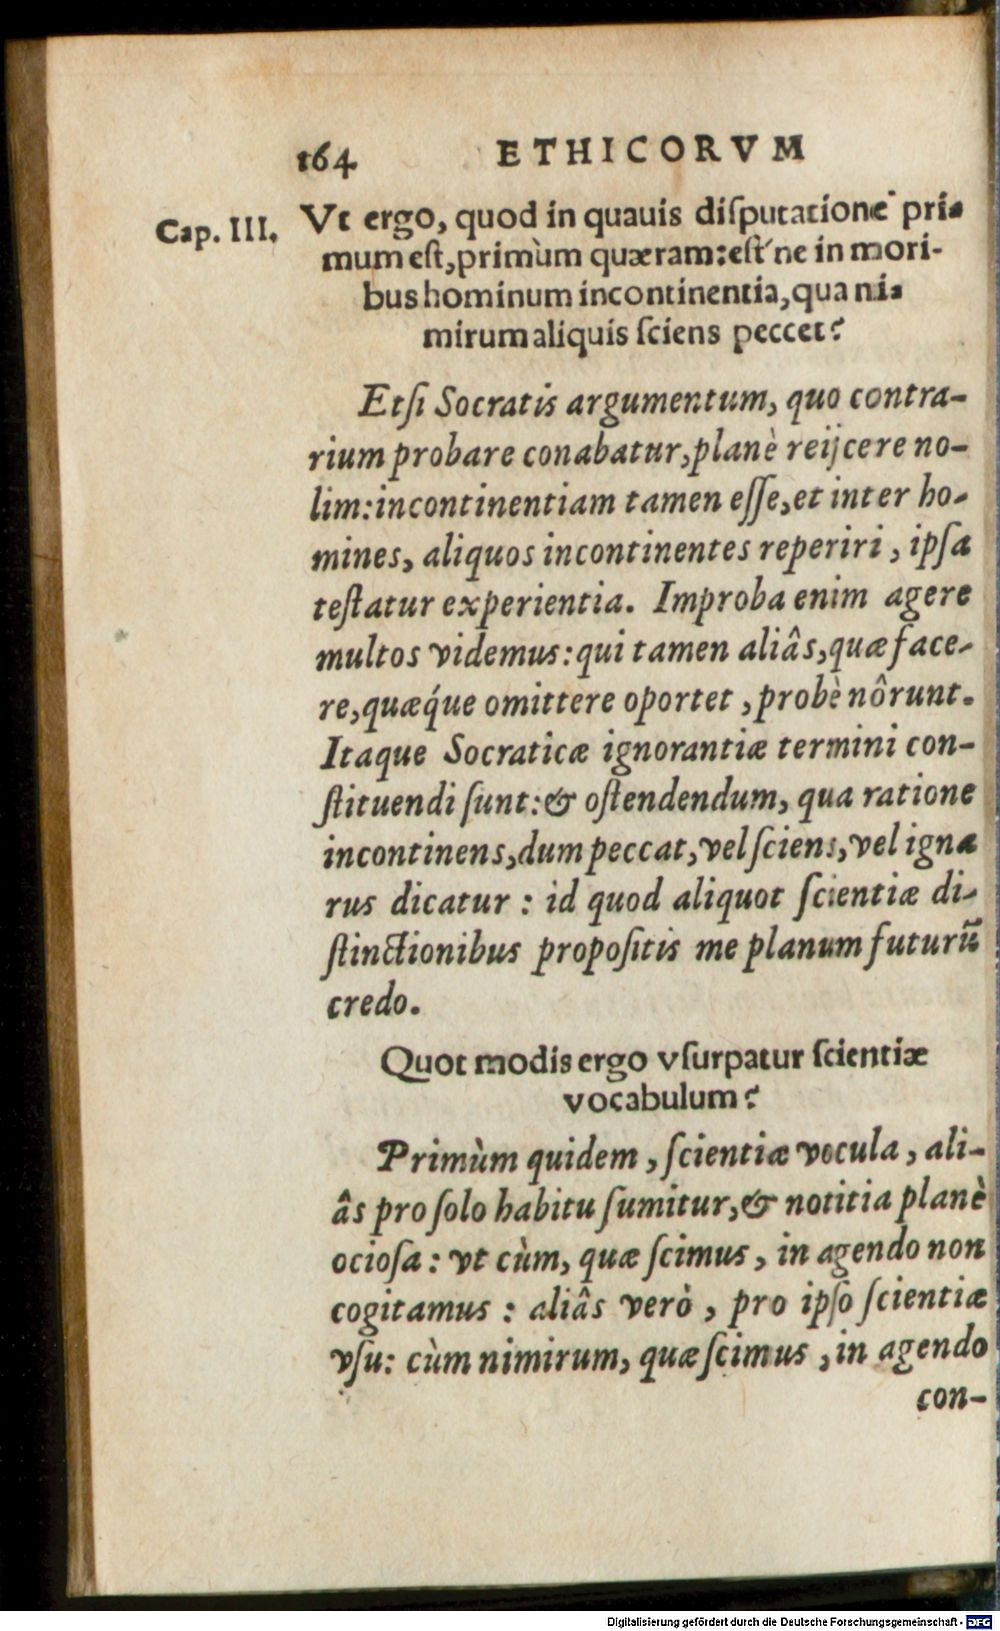 164 ETHICORVM
Cap. III. Vt ergo, quod in quauis diſputatione pri-
mum eſt, primùm quæram: eſt'ne in mori-
bus hominum incontinentia, qua ni-
mirum aliquis ſciens peccet?
Etſi Socratis argumentum, quo contra-
rium probare conabatur, planè reijcere no-
lim: incontinentiam tamen eſſe, et inter ho-
mines, aliquos incontinentes reperiri, ipſa
teſtatur experientia. Improba enim agere
multos videmus: qui tamen aliâs, quæ face-
re, quæq́ue omittere oportet, probè nôrunt.
Itaque Socraticæ ignorantiæ termini con-
ſtituendi ſunt: & oſtendendum, qua ratione
incontinens, dum peccat, vel ſciens, vel igna
rus dicatur : id quod aliquot ſcientiæ di-
ſtinctionibus propoſitis me planum futurū
credo.
Quot modis ergo vſurpatur ſcientiæ
vocabulum?
Primùm quidem, ſcientiæ vocula, ali-
âs pro ſolo habitu ſumitur, & notitia planè
ocioſa: vt cùm, quæ ſcimus, in agendo non
cogitamus : aliâs verò, pro ipſo ſcientiæ
vſu: cùm nimirum, quæ ſcimus, in agendo
con-
Digitalisierung gefördert durch die Deutsche Forschungsgemeinschaft - DFG